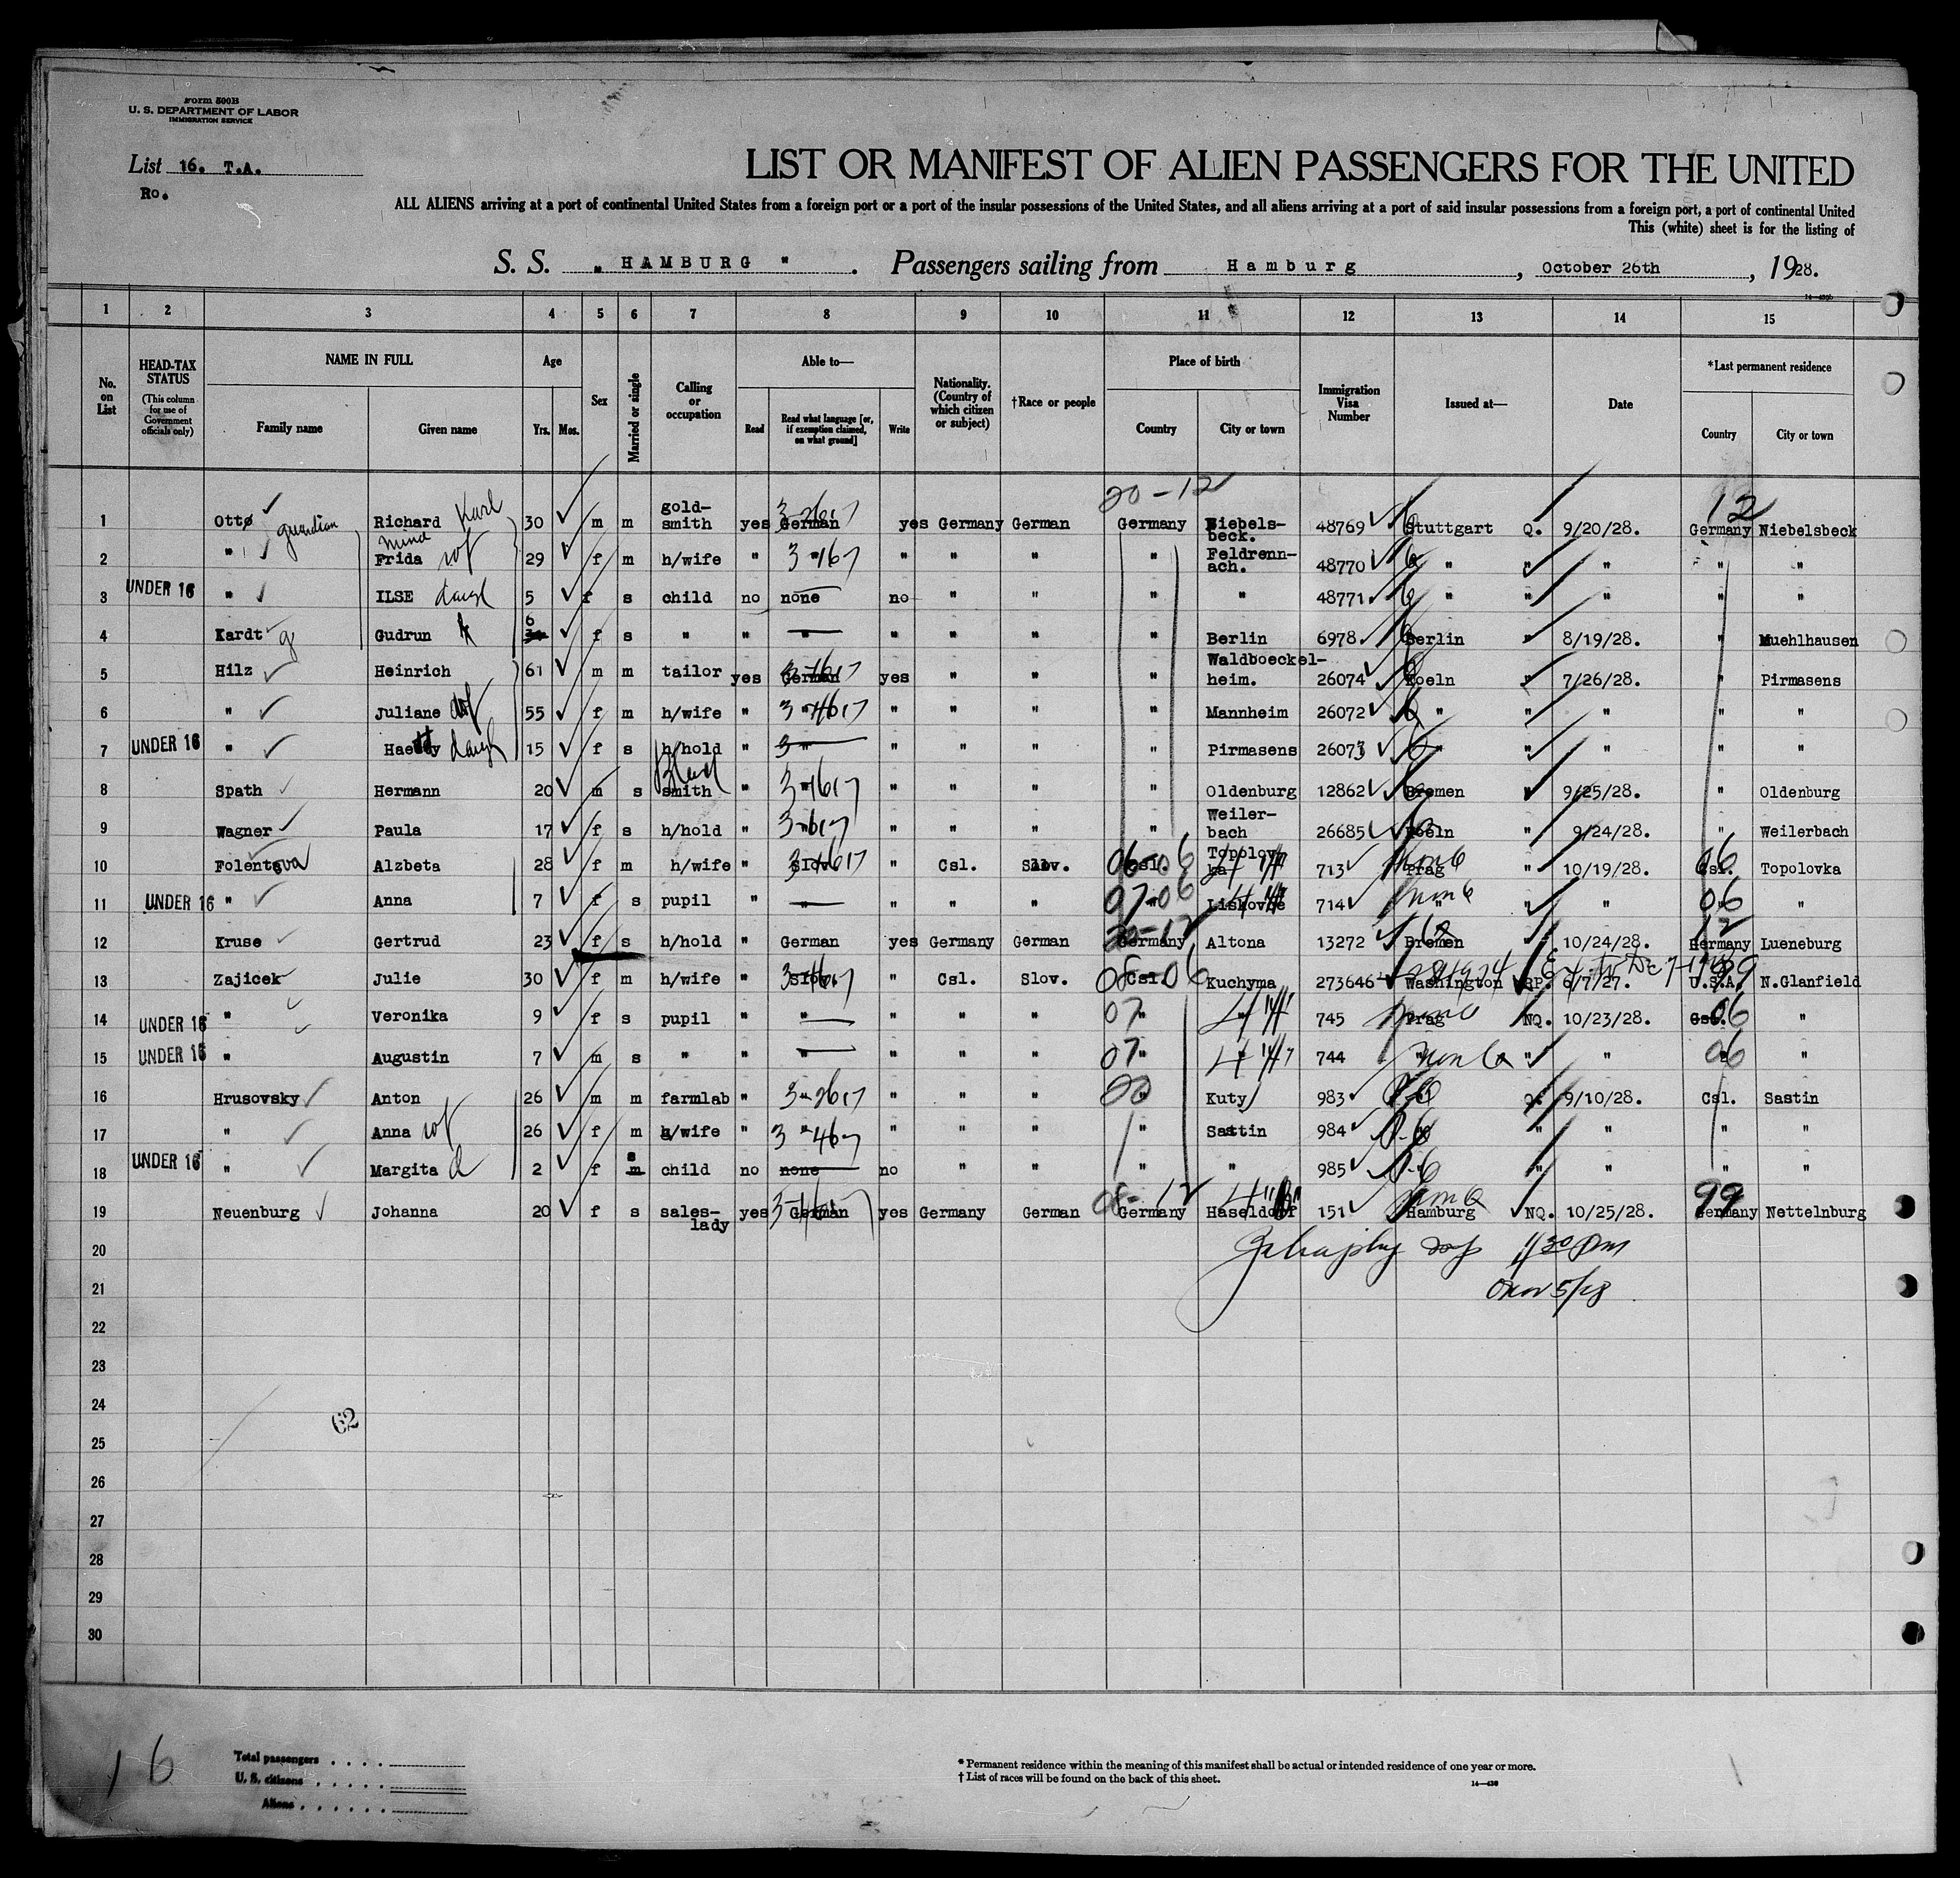 Form 500B
U. S. DEPARTMENT OF LABOR
IMMIGRATION SERVICE
List 16. T.A.
Ro.
LIST OR MANIFEST OF ALIEN PASSENGERS FOR THE UNITED
ALL ALIENS arriving at a port of continental United States from a foreign port or a port of the insular possessions of the United States, and all aliens arriving at a port of said insular possessions from a foreign port, a port of continental United
This (white) sheet is for the listing of
S. S. „ HAMBURG " . Passengers sailing from Hamburg , October 26th , 1928.
1 2 3 4 5 6 7 8 9 10 11 12 13 14 15
No. on List
HEAD-TAX STATUS (This column for use of Government officials only)
NAME IN FULL Family name Given name
Age Yrs. Mos.
Sex
Married or single
Calling or occupation
Able to— Read Read what language [or, if exemption claimed, on what ground] Write
Nationality. (Country of which citizen or subject)
†Race or people
Place of birth Country City or town
Immigration Visa Number
Issued at—
Date
*Last permanent residence Country City or town
20-12 12
1 Otto guardian Richard Karl 30 m m gold-smith yes German yes Germany German Germany Niebels-beck. 48769 Stuttgart Q. 9/20/28. Germany Niebelsbeck
2 " Frida wf 29 f m h/wife " " " " " " Feldrenn-ach. 48770 " " " " "
3 UNDER 16 " ILSE daugh 5 f s child no none no " " " " 48771 " " " " "
4 Kardt Gudrun 6 f s " " " " " " " Berlin 6978 Berlin " 8/19/28. " Muehlhausen
5 Hilz Heinrich 61 m m tailor yes German yes " " " Waldboeckel-heim. 26074 Koeln " 7/26/28. " Pirmasens
6 " Juliane wf 55 f m h/wife " " " " " " Mannheim 26072 " " " " "
7 UNDER 16 " Haetty daugh 15 f s h/hold " " " " " " Pirmasens 26073 " " " " "
8 Spath Hermann 20 m s smith " " " " " " Oldenburg 12862 Bremen " 9/25/28. " Oldenburg
9 Wagner Paula 17 f s h/hold " " " " " " Weiler-bach 26685 Koeln " 9/24/28. " Weilerbach
10 Folentova Alzbeta 28 f m h/wife " Slov. " Csl. Slov. Csl. Topolov-ka 713 Prag " 10/19/28. Csl. Topolovka
11 UNDER 16 " Anna 7 f s pupil " " " " " " Liskovce 714 " " " " "
12 Kruse Gertrud 23 f s h/hold " German yes Germany German Germany Altona 13272 Bremen " 10/24/28. Germany Lueneburg
13 Zajicek Julie 30 f m h/wife " Slov. " Csl. Slov. Csl. Kuchyma 273646 Washington RP. 6/7/27. U.S.A. N.Glanfield
14 UNDER 16 " Veronika 9 f s pupil " " " " " " " 745 Prag NQ. 10/23/28. Csl. "
15 UNDER 16 " Augustin 7 m s " " " " " " " " 744 " " " " "
16 Hrusovsky Anton 26 m m farmlab " " " " " " Kuty 983 " Q. 9/10/28. Csl. Sastin
17 " Anna wf 26 f m h/wife " " " " " " Sastin 984 " " " " "
18 UNDER 16 " Margita d 2 f s child no none no " " " " 985 " " " " "
19 Neuenburg Johanna 20 f s sales-lady yes German yes Germany German Germany Haseldorf 151 Hamburg NQ. 10/25/28. Germany Nettelnburg
20 11 30 Pm
21 Nov 5/28
22
23
24
62
25
26
27
28
29
30
16
Total passengers . . . .
U. S. citizens . . . . .
Aliens . . . . . .
* Permanent residence within the meaning of this manifest shall be actual or intended residence of one year or more.
† List of races will be found on the back of this sheet.
14—430